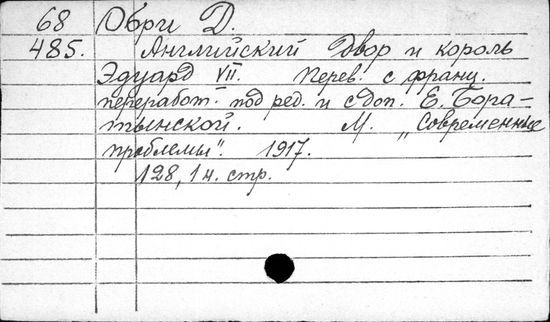 68 Обри Д.
485. Английский двор и король
Эдуард VII. Перев. с франц.
переработ. под ред. и с доп. Е. Бора-
тынской. М. „Современные
проблемы". 1917.
128, 1 н. стр.